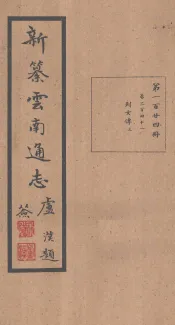 新纂雲南通志
盧漢題簽
第一百廿四冊
卷二百四十一
列女傳二